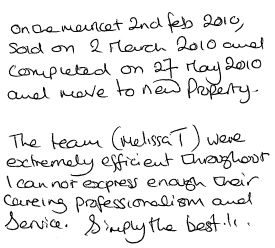 on the market 2nd feb 2010,
Sold on 2 March 2010 and
Completed on 27 May 2010
and move to new Property.
The team (Melissa T) were
extremely efficient throughout
I cannot express enough their
careing professionalism and
Service. Simply the best.!!